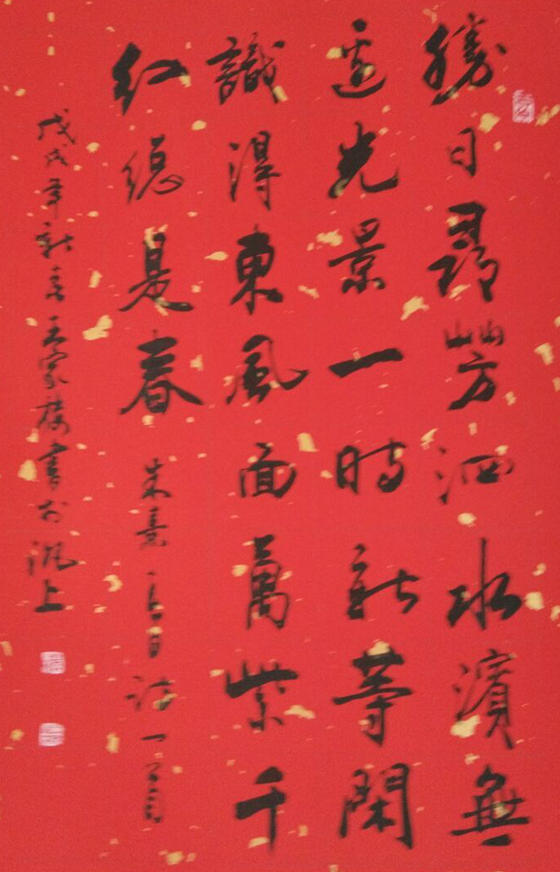 勝日尋芳泗水濱無
邊光景一時新等閑
識得東風面萬紫千
紅總是春 朱熹春日詩一首
戊戌年新春王家樓書於滬上